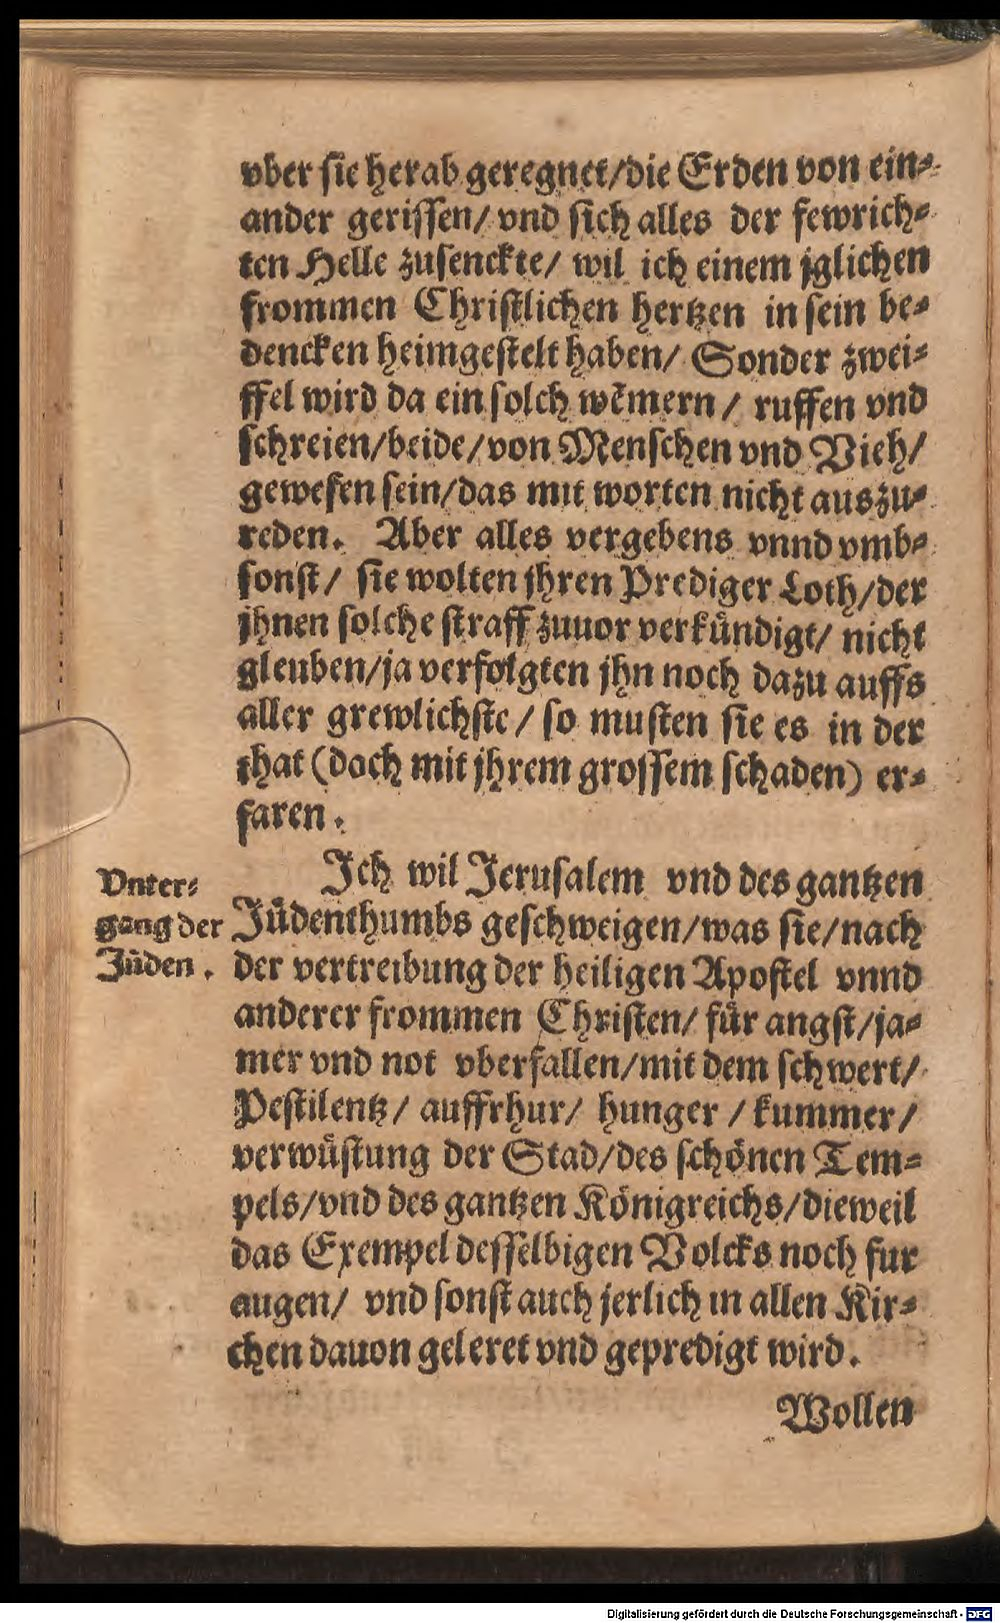 vber sie herab geregnet/die Erden von ein-
ander gerissen/ vnd sich alles der fewrich-
ten Helle zusenckte/ wil ich einem jglichen
frommen Christlichen hertzen in sein be-
dencken heimgestelt haben/ Sonder zwei-
ffel wird da ein solch wem̃ern/ ruffen vnd
schreien/beide/von Menschen vnd Vieh/
gewesen sein/das mit worten nicht auszu-
reden. Aber alles vergebens vnnd vmb-
sonst/ sie wolten jhren Prediger Loth/der
jhnen solche straff zuuor verkündigt/ nicht
gleuben/ja verfolgten jhn noch dazu auffs
aller grewlichste/ so musten sie es in der
that (doch mit jhrem grossem schaden) er-
faren.
Vnter-
gang der
Jüden.
Ich wil Jerusalem vnd des gantzen
Jüdenthumbs geschweigen/was sie/nach
der vertreibung der heiligen Apostel vnnd
anderer frommen Christen/ für angst/ja-
mer vnd not vberfallen/mit dem schwert/
Pestilentz/ auffrhur/ hunger/ kummer/
verwüstung der Stad/des schönen Tem-
pels/vnd des gantzen Königreichs/dieweil
das Exempel desselbigen Volcks noch fur
augen/ vnd sonst auch jerlich in allen Kir-
chen dauon geleret vnd gepredigt wird.
Wollen
Digitalisierung gefördert durch die Deutsche Forschungsgemeinschaft - DFG